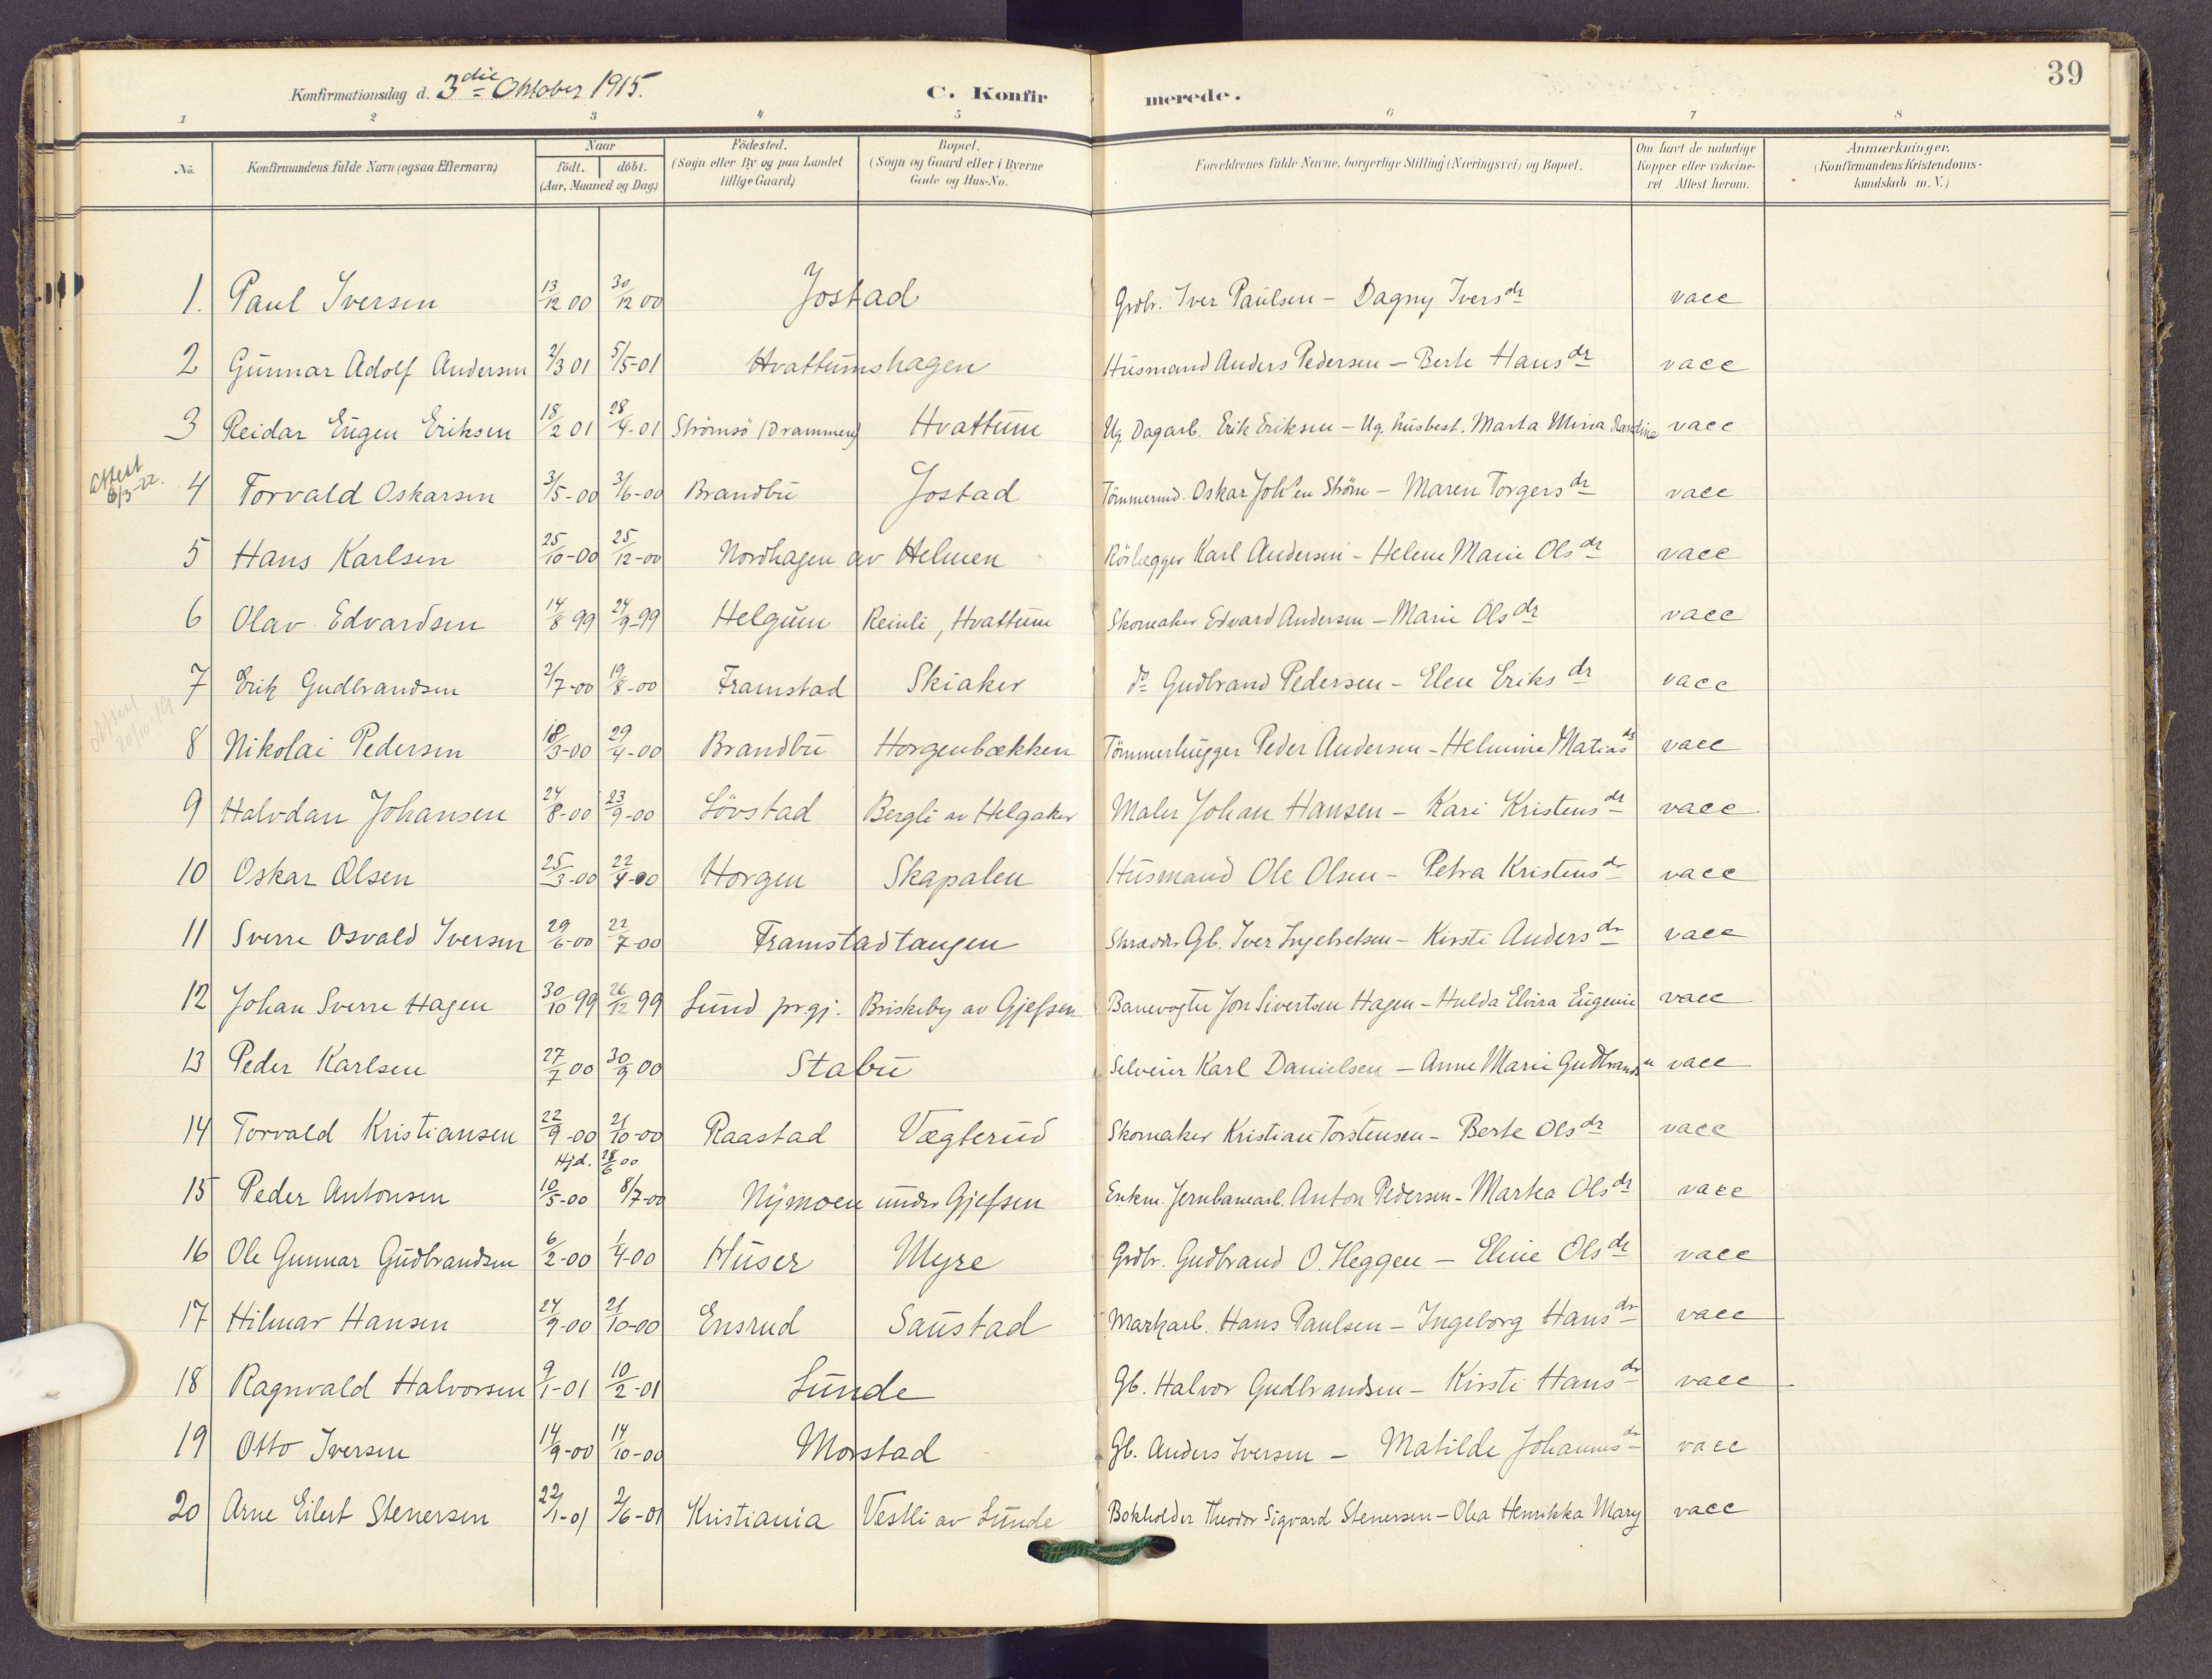 39
Konfirmationsdag d. 3die Oktober 1915.
C. Konfirmerede.
1 2 3 4 5 6 7 8
No. | Konfirmandens fulde Navn (ogsaa Efternavn) | Naar født. døbt. (Aar, Maaned og Dag) | Fødested. (Sogn eller By og paa Landet tillige Gaard) | Bopæl. (Sogn og Gaard eller i Byerne Gade og Hus-No. | Forældrenes fulde Navne, borgerlige Stilling (Næringsvei) og Bopæl. | Om havt de naturlige Kopper eller vakcineret Attest herom. | Anmærkninger. (Konfirmandens Kristendomskundskab m. V.)
1. Paul Iversen 13/12 00 30/12 00 Jostad Grdbr. Iver Paulsen - Dagny Iversdr vacc
2 Gunnar Adolf Andersen 2/3 01 5/5-01 Hvattumshagen Husmand Anders Pedersen - Berte Hansdr vacc
3 Reidar Eugen Eriksen 18/2 01 28/4-01 Strømsö (Drammen) Hvattum Ug. Dagarb. Erik Eriksen - Ug. husbest. Marta Mina Randine vacc
Attest 6/3-22. 4 Torvald Oskarsen 3/5-00 3/6-00 Brandbu Jostad Tömmermd. Oskar Joh'sen Ström - Maren Torgersdr vacc
5 Hans Karlsen 25/10-00 25/12-00 Nordhagen av Helmen Rörlægger Karl Andersen - Helene Marie Olsdr vacc
6 Olav Edvardsen 14/8 99 24/9-99 Helgum Reinli, Hvattum Skomaker Edvard Andersen - Marie Olsdr vacc
7 Erik Gudbrandsen 2/7-00 19/8-00 Framstad Skiaker do Gudbrand Pedersen - Elen Eriksdr vacc
Attest 20/10 19 8 Nikolai Pedersen 18/3-00 29/4-00 Brandbu Horgenbækken Tömmerhugger Peder Andersen - Helmine Matiasdr vacc
9 Halvdan Johansen 24/8-00 23/9-00 Lövstad Bergli av Helgaker Maler Johan Hansen - Kari Kristensdr vacc
10 Oskar Olsen 25/3-00 22/4-00 Horgen Skapalen Husmand Ole Olsen - Petra Kristensdr vacc
11 Sverre Osvald Iversen 29/6-00 22/7-00 Framstadtangen Skrædder Gb. Iver Ingebretsen - Kirsti Andersdr vacc
12 Johan Sverre Hagen 30/10 99 26/12 99 Lund prgj. Briskeby av Gjefsen Banevogter Jon Sivertsen Hagen - Hulda Elvira Eugenie vacc
13 Peder Karlsen 27/7 00 30/9 00 Stabu Selveier Karl Danielsen - Anne Marie Gudbrandsdr vacc
14 Torvald Kristiansen 22/9-00 21/10-00 Raastad Vægterud Skomaker Kristian Torstensen - Berte Olsdr vacc
Hjd. 28/6 00
15 Peder Antonsen 10/5-00 8/7-00 Nymoen under Gjefsen Enkm. Jernbanearb. Anton Pedersen - Martea Olsdr vacc
16 Ole Gunnar Gudbrandsen 6/2-00 1/4-00 Huser Myre Grdbr. Gudbrand O. Heggen - Eline Olsdr vacc
17 Hilmar Hansen 24/9-00 21/10-00 Ensrud Saustad Markarb. Hans Paulsen - Ingeborg Hansdr vacc
18 Ragnvald Halvorsen 9/1-01 10/2-01 Lunde Gb. Halvor Gudbrandsen - Kirsti Hansdr vacc
19 Otto Iversen 14/9-00 14/10-00 Morstad Gb. Anders Iversen - Matilde Johannesdr vacc
20 Arne Eilert Stenersen 22/1-01 2/6-01 Kristiania Vestli av Lunde Bokholder Theodor Sigvard Stenersen - Olea Henrikka Mary vacc